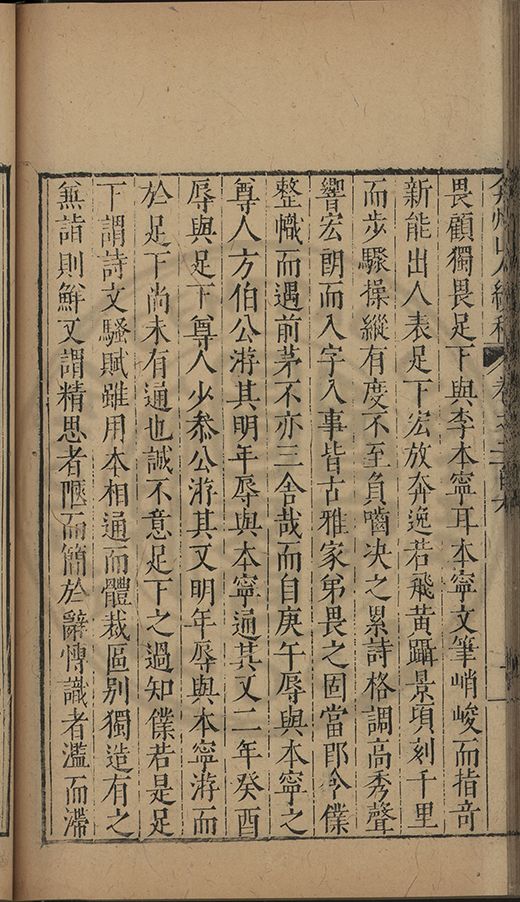 弇州山人續稿 卷之二百
畏顧獨畏足下與李本寧耳本寧文筆峭峻而指奇
新能出人表足下宏放奔逸若飛黄躡景頃刻千里
而步驟操縱有度不至負嚙决之累詩格調高秀聲
響宏朗而入字入事皆古雅家弟畏之固當即今僕
整幟而遇前茅不亦三舍哉而自庚午辱與本寧之
尊人方伯公游其明年辱與本寧通其又二年癸酉
辱與足下尊人少叅公游其又明年辱與本寧游而
於足下尚未有通也誠不意足下之過知僕若是足
下謂詩文騷賦雖用本相通而體裁區别獨造有之
無詣則鮮又謂精思者陿而簡於辭愽識者濫而滯